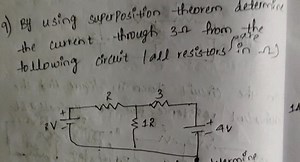 9) By using superposition theorem determine
the current through 3Ω from the
following circuit (all resistors in Ω)
2
3
12
4V